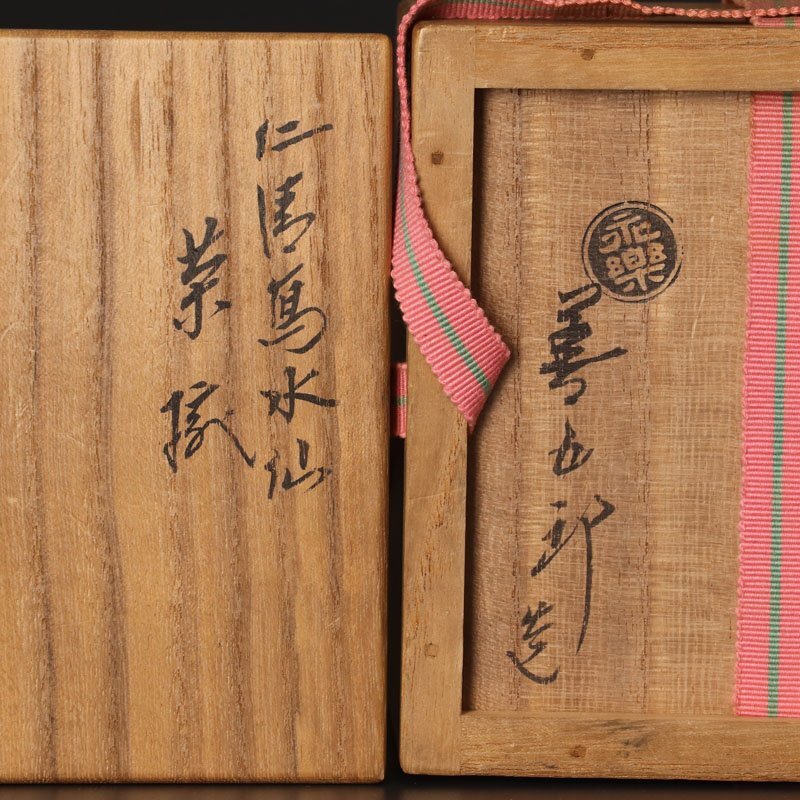 仁清写水仙
茶碗
永樂
善五郎造